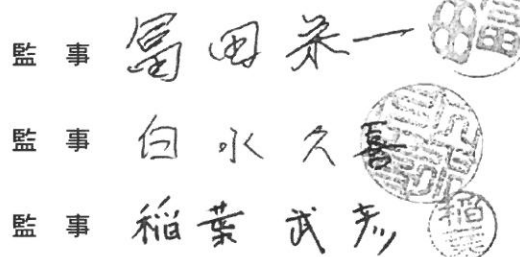 監事 冨田 栄一
監事 白水久喜
監事 稲葉武彦